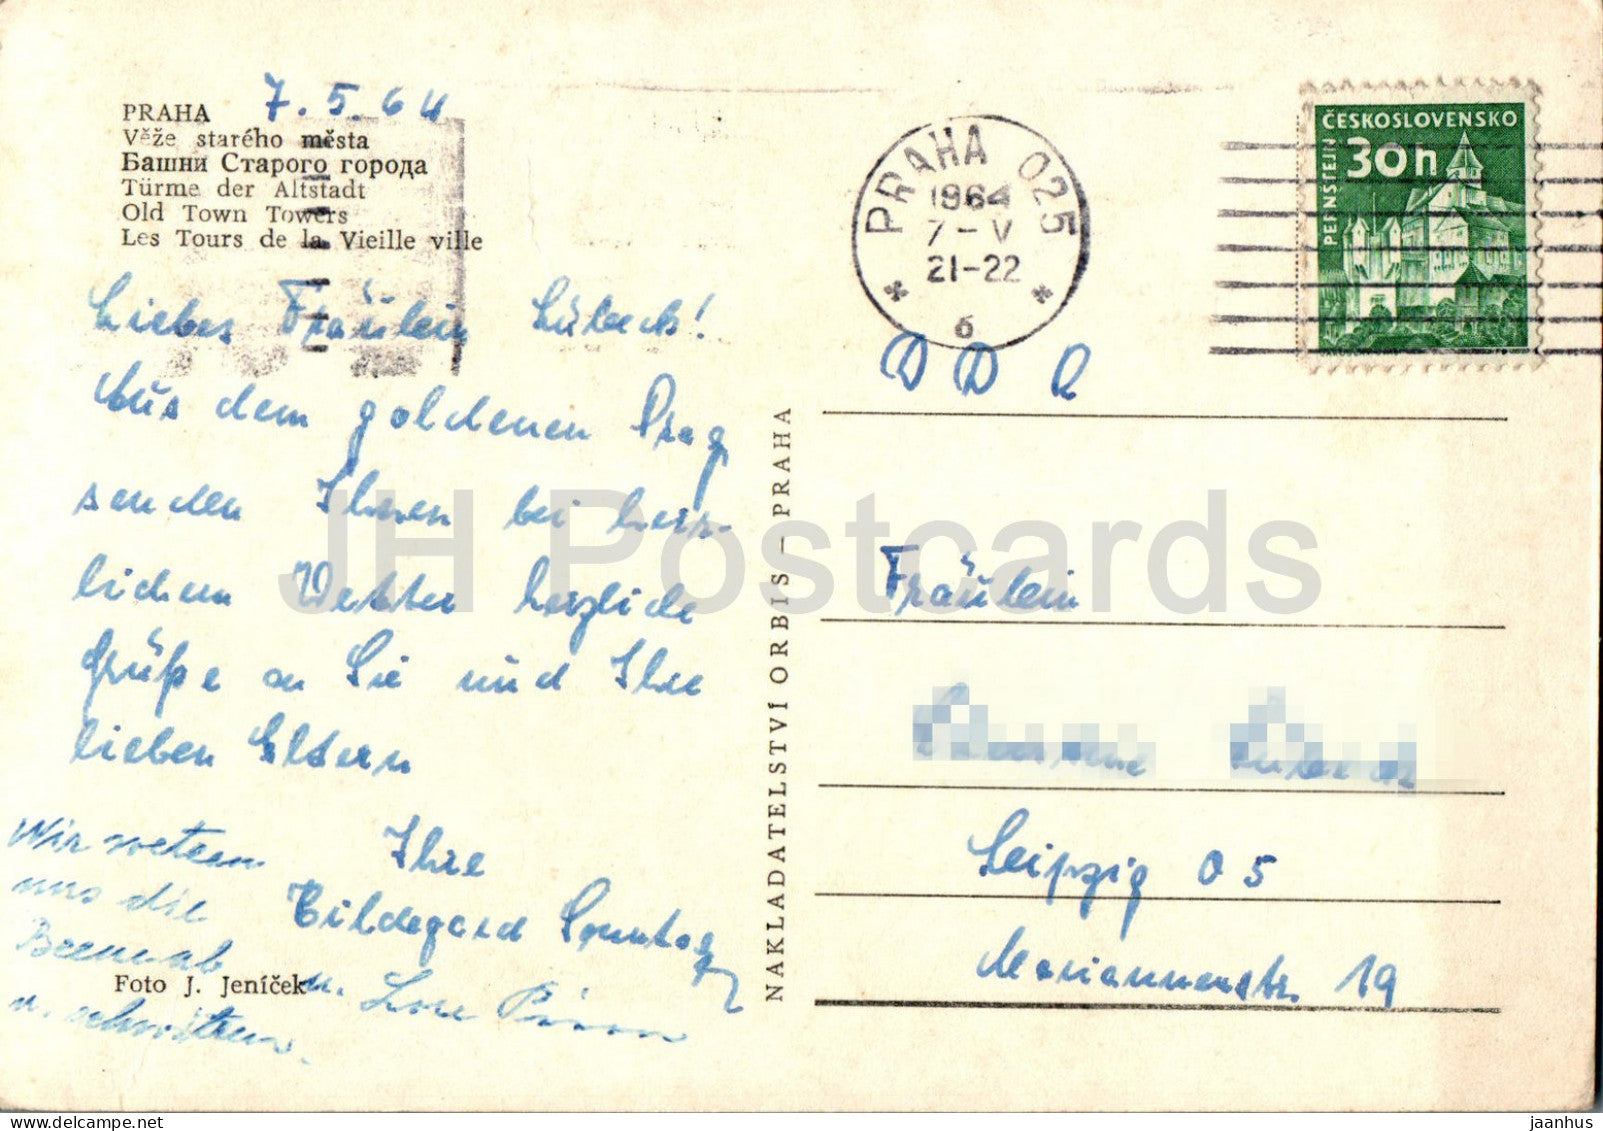 PRAHA 7.5.64
Věže starého města
Башни Старого города
Türme der Altstadt
Old Town Towers
Les Tours de la Vieille ville
Liebes Fräulein Lübeck!
Aus dem goldenen Prag
senden Ihnen bei herr-
lichem Wetter herzliche
Grüße an Sie und Ihre
lieben Eltern
Ihre
Hildegard Sonntag
u. Lore
Wir
uns die
u. schwitzen.
Foto J. Jeníček
NAKLADATELSTVÍ ORBIS — PRAHA
PRAHA 025
1964
7-V
21-22
6
ČESKOSLOVENSKO
30h
PERNŠTEJN
DDR
Fräulein
Leipzig O5
Mariannenstr. 19
JH Postcards
jaanhus